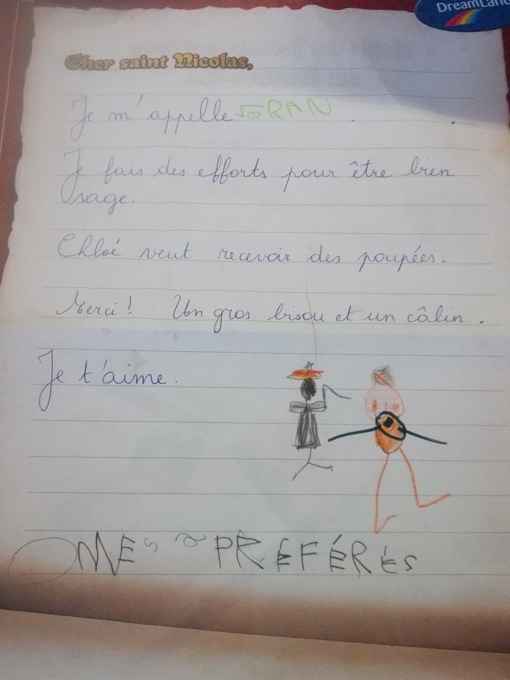 DreamLand
Cher saint Nicolas,
Je m'appelle JORAN.
Je fais des efforts pour être bien
sage.
Chloé veut recevoir des poupées.
Merci! Un gros bisou et un câlin.
Je t'aime.
MES PRÉFÉRÉS